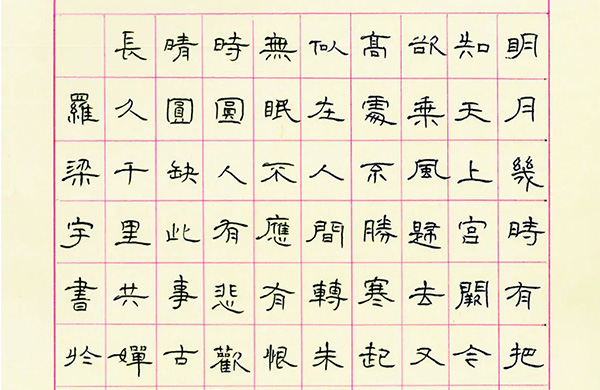 明月幾時有把
知天上宮闕今
欲乘風歸去又
高處不勝寒起
似在人間轉朱
無眠不應有恨
時圓人有悲歡
晴圓缺此事古
長久千里共嬋
羅梁宇書於